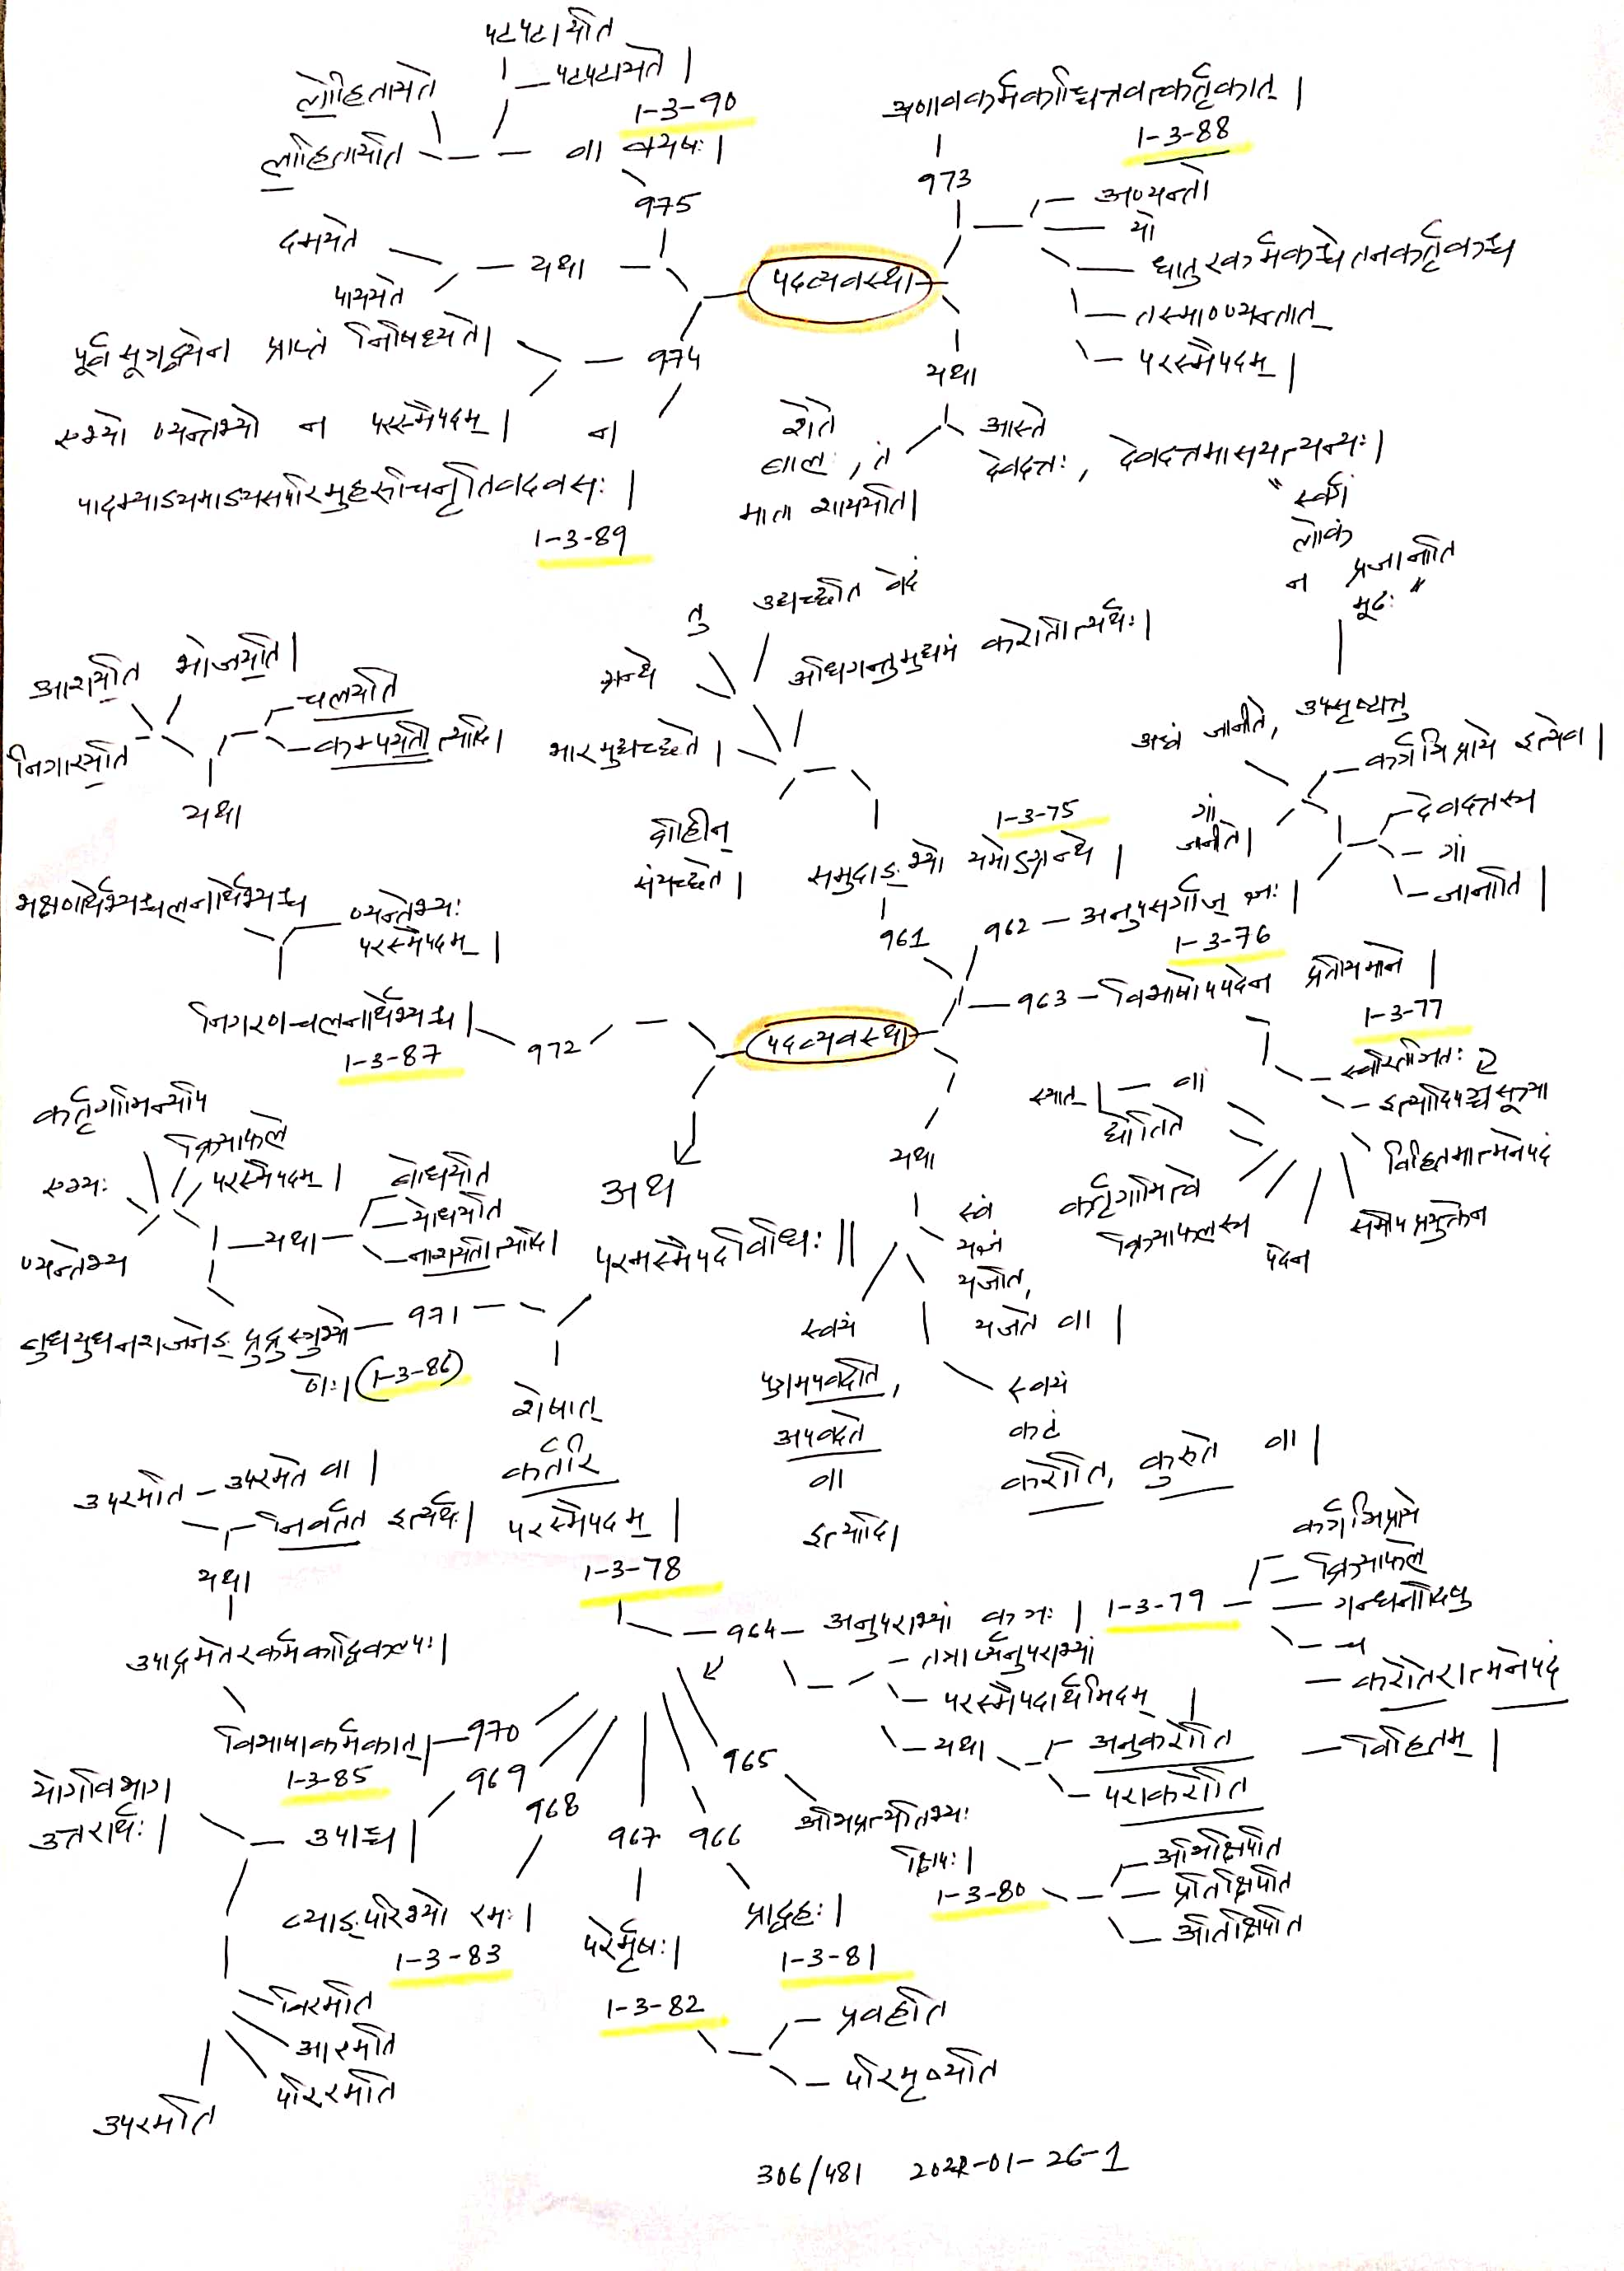 पटपटायति
पटपटायते |
लोहितायते
लोहितायति
वा क्यषः |
1-3-90
९७५
यथा
दमयते
पाययते
९७४
पूर्व सूत्रद्वयेन प्राप्तं निषिध्यते |
एभ्यो ण्यन्तेभ्यो न परस्मैपदम् |
न
पादम्याङ्यमाङ्यसपरिमुहरुचिनृतिवदवसः |
1-3-89
पदव्यवस्था
अणावकर्मकाच्चित्तवत्कर्तृकात् |
1-3-88
९७३
अण्यन्तो
यो
धातुरकर्मकश्चेतनकर्तृकश्च
तस्माण्ण्यन्तात्
परस्मैपदम् |
यथा
शेते
बालः, तं
माता शाययति |
आस्ते
देवदत्तः, देवदत्तमासयत्यन्यः |
"स्वर्गं
लोकं
न प्रजानाति
मूढः"
तु उद्यच्छति वेदं
ग्रन्थे
अधिगन्तुमुद्यमं करोतीत्यर्थः |
भारमुद्यच्छते |
व्रीहीन्
संयच्छते |
1-3-75
समुदाङ्भ्यो यमोऽग्रन्थे |
९६१
अश्वं जानीते, उपसृष्यत्तु
कर्त्रभिप्राये इत्येव |
गां
जानीते |
देवदत्तस्य
गां
जानाति |
९६२ - अनुपसर्गाज् ज्ञः |
1-3-76
९६३ - विभाषोपपदेन प्रतीयमाने |
1-3-77
स्वरितञितः
इत्यादिपञ्चसूत्र्या
विहितमात्मनेपदं
समीप प्रयुक्तेन
पदेन
क्रियाफलस्य
कर्तृगामित्वे
द्योतिते
वा
स्यात् |
आशयति भोजयति |
निगारयति
चलयति
कम्पयतीत्यादि |
यथा
भक्षणार्थेभ्यश्चलनार्थेभ्यश्च
ण्यन्तेभ्यः
परस्मैपदम् |
निगरणचलनार्थेभ्यश्च |
1-3-87
९७२
पदव्यवस्था
अथ
परमस्मैपदविधिः ||
यथा
स्वं
यज्ञं
यजति,
यजते वा |
स्वयं
पुत्रमपवदति,
अपवदते
वा
इत्यादि |
स्वयं
कटं
करोति, कुरुते वा |
कर्तृगामिन्यपि
क्रियाफले
परस्मैपदम् |
एभ्यः
ण्यन्तेभ्य
यथा
बोधयति
योधयति
नाशयतीत्यादि |
बुधयुधनशजनेङ् प्रुद्रुस्रुभ्यो
णेः | (1-3-86)
९७१
शेषात्
कर्तरि
परस्मैपदम् |
1-3-78
उपरमति - उपरमते वा |
निवर्तत इत्यर्थः |
यथा
उपाद्रमेतरकर्मकाद्विकल्पः |
विभाषाकर्मकात् | ९७०
1-3-85
९६४ - अनुपराभ्यां कृञः | 1-3-79
कर्त्रभिप्राये
क्रियाफले
गन्धनादिषु
च
करोतेरात्मनेपदं
विहितम् |
तत्राप्यनुपराभ्यां
परस्मैपदार्थमिदम् |
यथा
अनुकरोति
पराकरोति
योगविभाग
उत्तरार्थः |
उपाच्च |
९६९
९६८
९६७
९६६
९६५
अभिप्रत्यतिभ्यः
क्षिपः |
1-3-80
अभिक्षिपति
प्रतिक्षिपति
अतिक्षिपति
व्याङ्परिभ्यो रमः |
1-3-83
परेर्मृषः |
1-3-82
प्राद्वहः |
1-3-81
प्रवहति
परिमृष्यति
विरमति
आरमति
परिरमति
उपरमति
306/481 2022-01-26-1